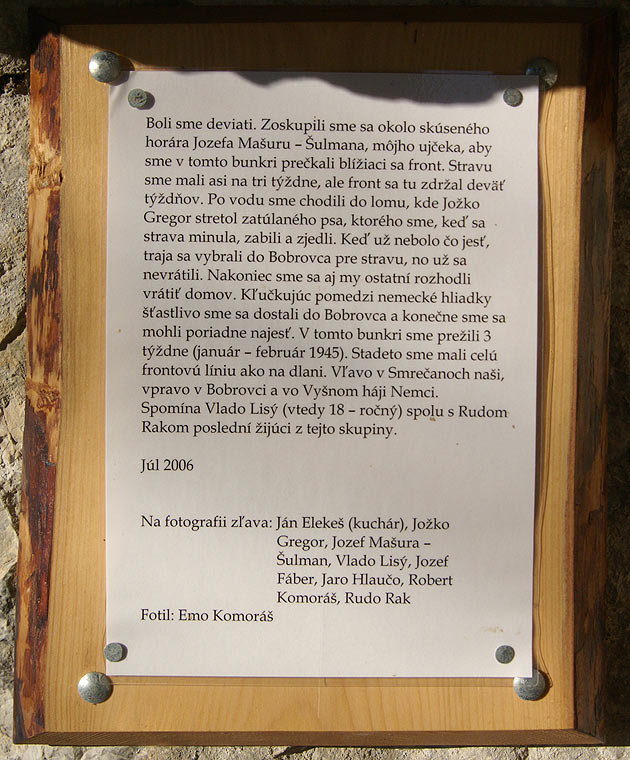 Boli sme deviati. Zoskupili sme sa okolo skúseného
horára Jozefa Mašuru – Šulmana, môjho ujčeka, aby
sme v tomto bunkri prečkali blížiaci sa front. Stravu
sme mali asi na tri týždne, ale front sa tu zdržal deväť
týždňov. Po vodu sme chodili do lomu, kde Jožko
Gregor stretol zatúlaného psa, ktorého sme, keď sa
strava minula, zabili a zjedli. Keď už nebolo čo jesť,
traja sa vybrali do Bobrovca pre stravu, no už sa
nevrátili. Nakoniec sme sa aj my ostatní rozhodli
vrátiť domov. Kľučkujúc pomedzi nemecké hliadky
šťastlivo sme sa dostali do Bobrovca a konečne sme sa
mohli poriadne najesť. V tomto bunkri sme prežili 3
týždne (január – február 1945). Stadeto sme mali celú
frontovú líniu ako na dlani. Vľavo v Smrečanoch naši,
vpravo v Bobrovci a vo Vyšnom háji Nemci.
Spomína Vlado Lisý (vtedy 18 – ročný) spolu s Rudom
Rakom poslední žijúci z tejto skupiny.
Júl 2006
Na fotografii zľava: Ján Elekeš (kuchár), Jožko
Gregor, Jozef Mašura –
Šulman, Vlado Lisý, Jozef
Fáber, Jaro Hlaučo, Robert
Komoráš, Rudo Rak
Fotil: Emo Komoráš